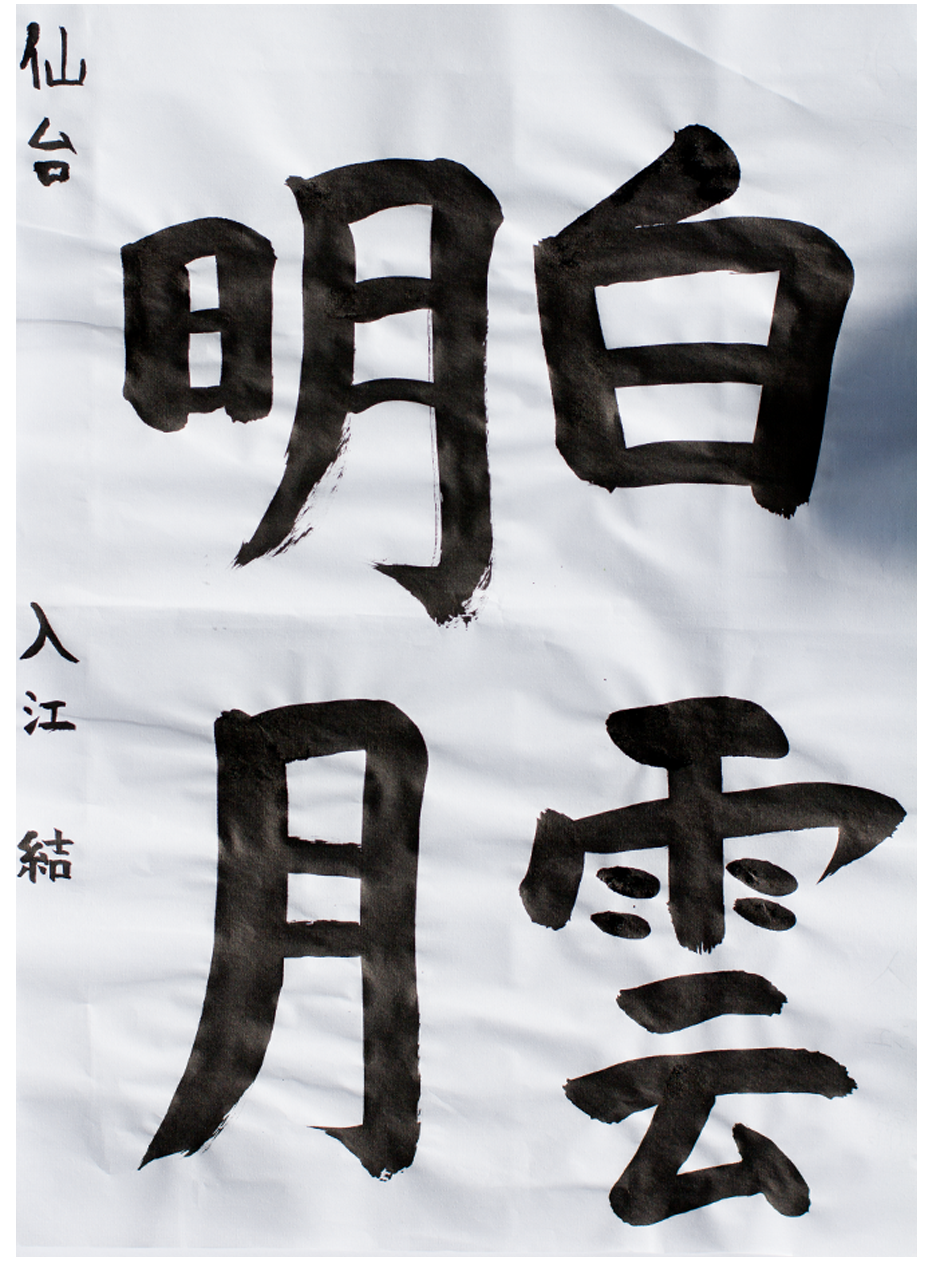 白雲
明月
仙台 入江 結